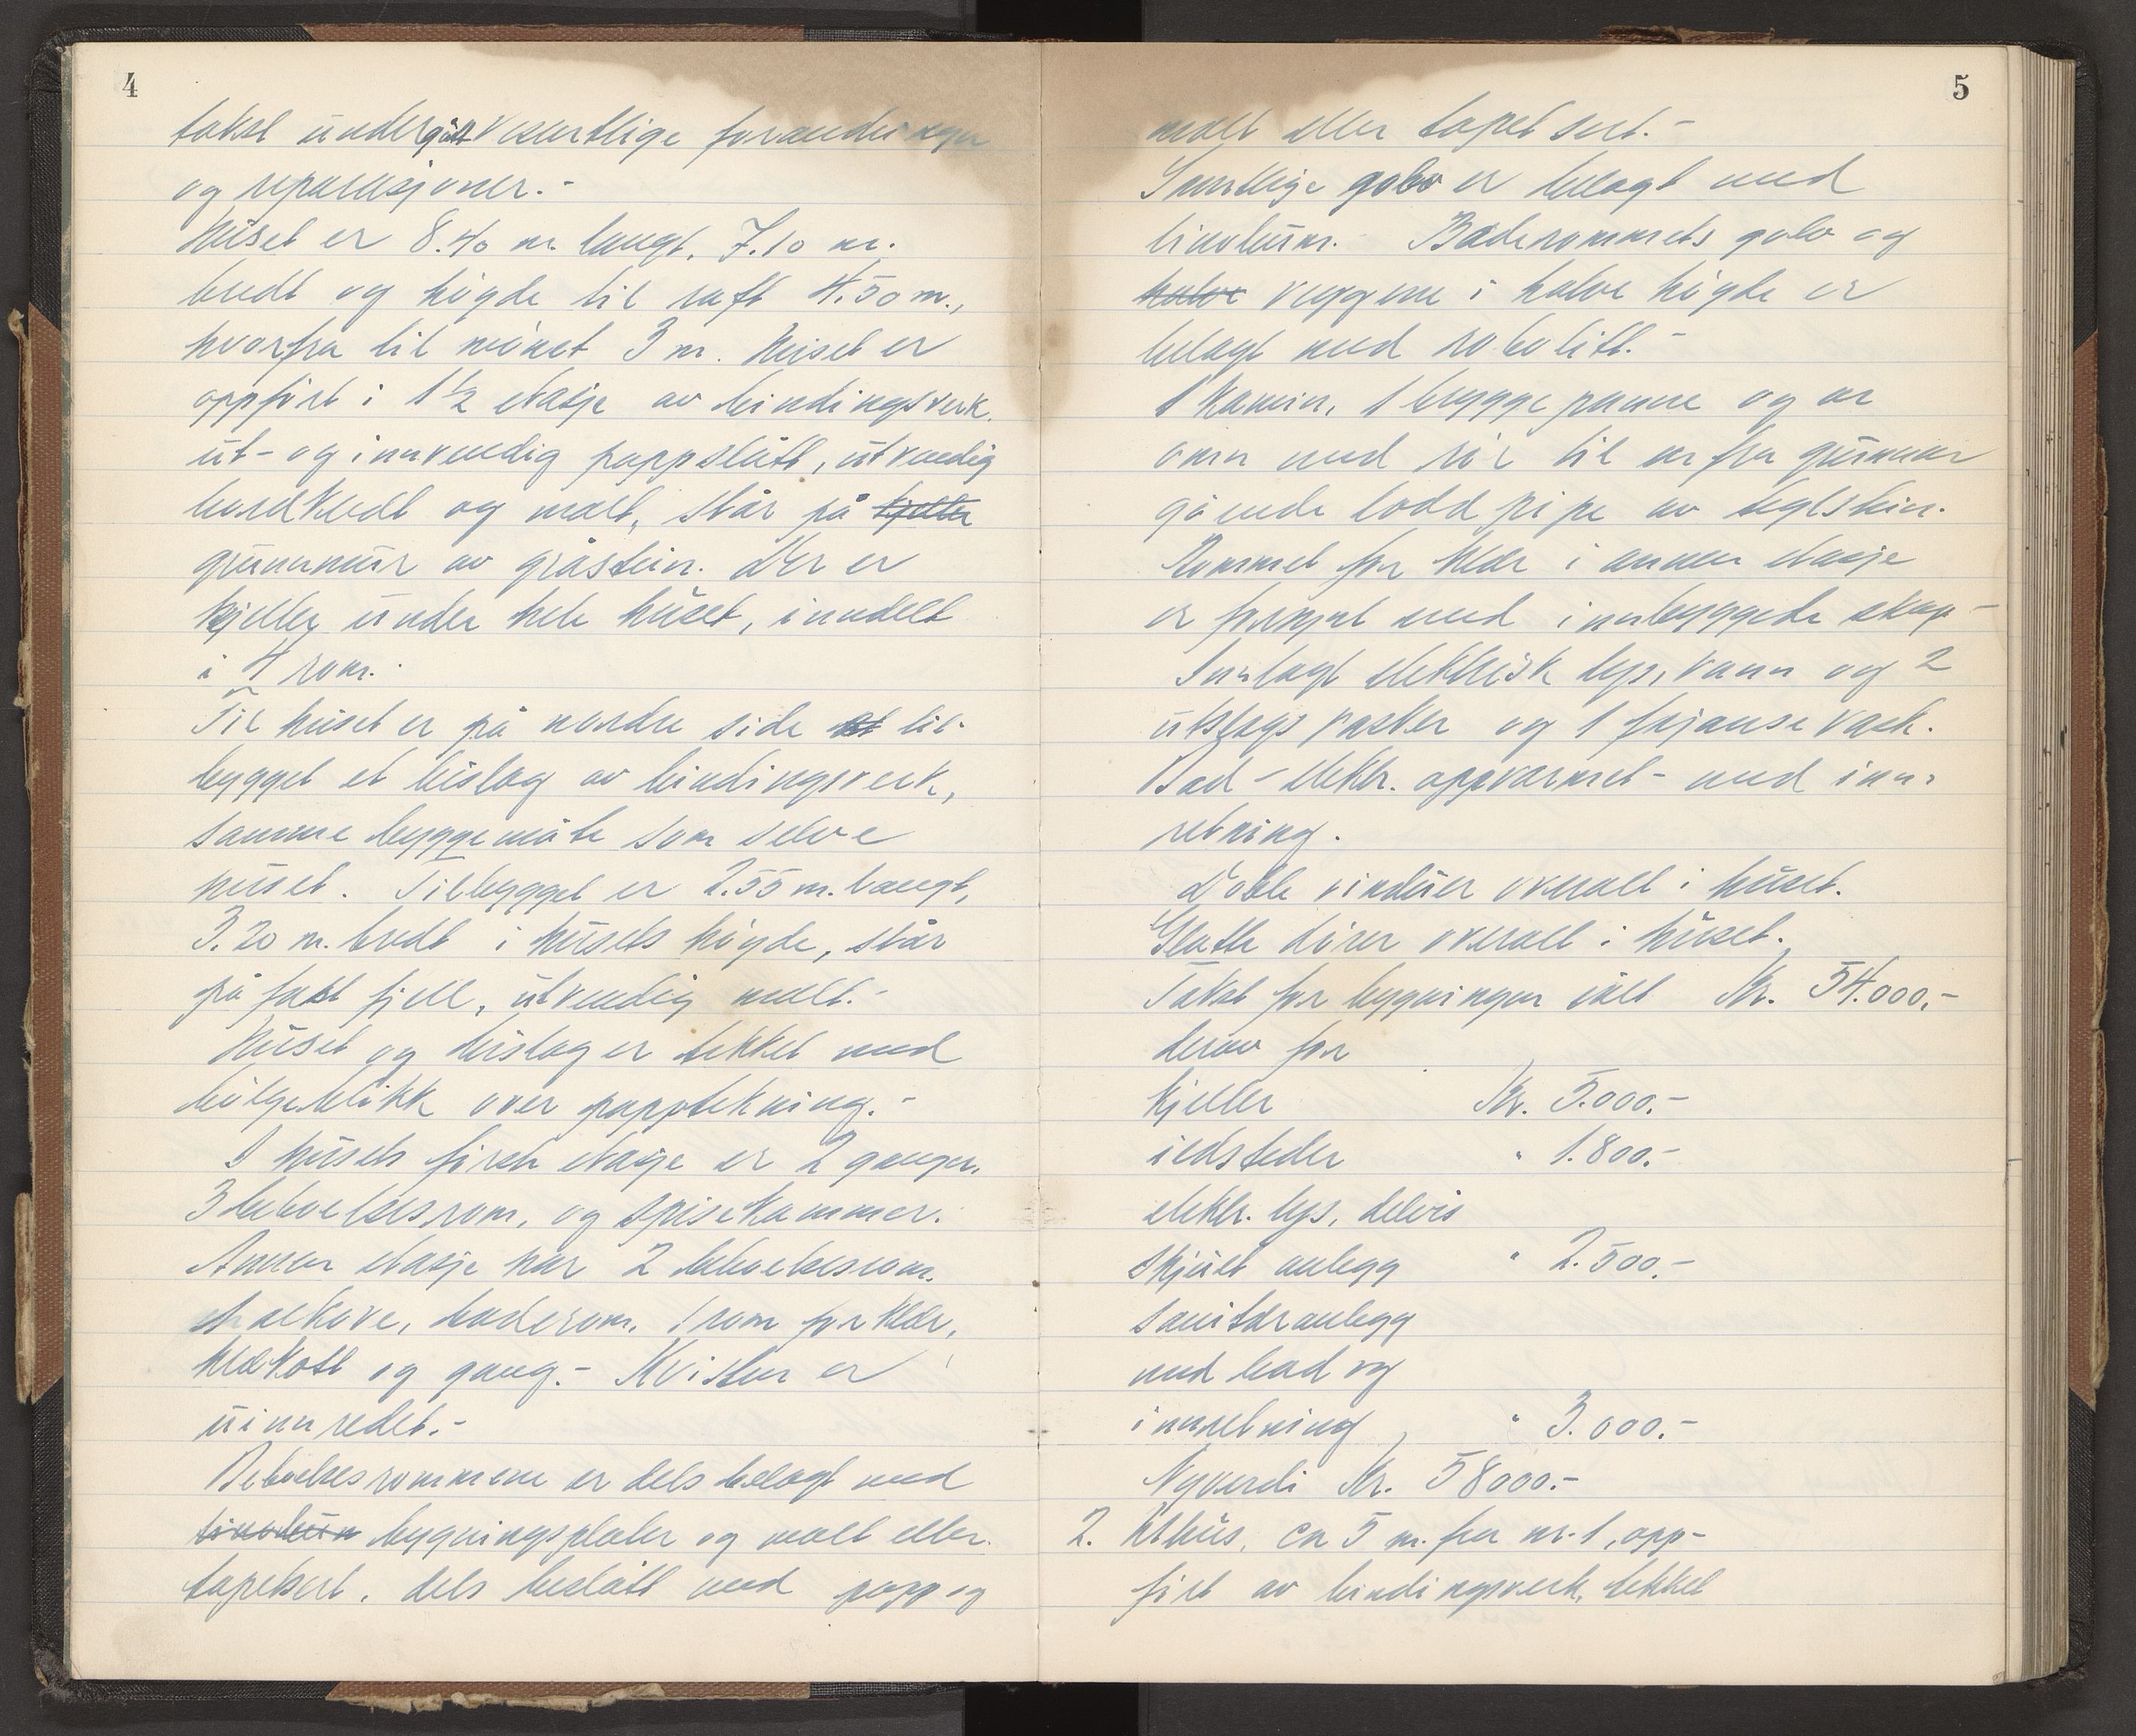 4
takst undergått vesentlige forandringer
og reparasjoner.-
Huset er 8.40 m. langt, 7.10 m.
bredt og høgde til raft 4.50 m.,
hvorfra til mønet 3 m. Huset er
oppført i 1 1/2 etasje av bindingsverk,
ut- og innvendig pappslått, utvendig
bordkledt og malt, står på kjeller
grunnmur av gråstein. Der er
kjeller under hele huset, inndelt
i 4 rom.
Til huset er på nordre side et til-
bygget et bislag av bindingsverk,
samme byggemåte som selve
huset. Tilbygget er 2.55 m. langt,
3.20 m. bredt i husets høgde, står
på fast fjell, utvendig malt.-
Huset og bislag er tekket med
bølgeblikk over papptekning.-
I husets første etasje er 2 ganger,
3 beboelsesrom, og spisekammer.
Annen etasje har 2 beboelsesrom,
alkove, baderom, 1 rom for klær,
klekott og gang.- Kvisten er
uinnredet.-
Beboelsesrommene er dels belagt med
linoleum bygningsplater og malt eller
tapetsert, dels beslått med papp og
5
malt eller tapetsert.-
Samtlige golv er belagt med
linoleum. Baderommets golv og
halve veggene i halve høgde er
belagt med robolitt.-
1 kamin, 1 bryggepanne og en
ovn med rør til en fra grunnen
gående lodd pipe av teglstein.
Rommet for klær i annen etasje
er forsynt med innbyggede skap-
Innlagt elektrisk lys, vann og 2
utslagsvasker og 1 fajanse vask.
Bad - elektr. oppvarmet - med inn-
retning.
Doble vinduer overalt i huset.
Glatte dører overalt i huset.
Takst for bygningen ialt Kr. 54.000.-
derav for
kjeller Kr. 5.000.-
ildsteder " 1.800.-
elektr. lys, delvis
skjult anlegg " 2.500.-
sanitæranlegg
med bad og
innretning " 3.000.-
Nyverdi Kr. 58000.-
2. Uthus, ca 5 m. fra nr. 1, opp-
ført av bindingsverk, tekket